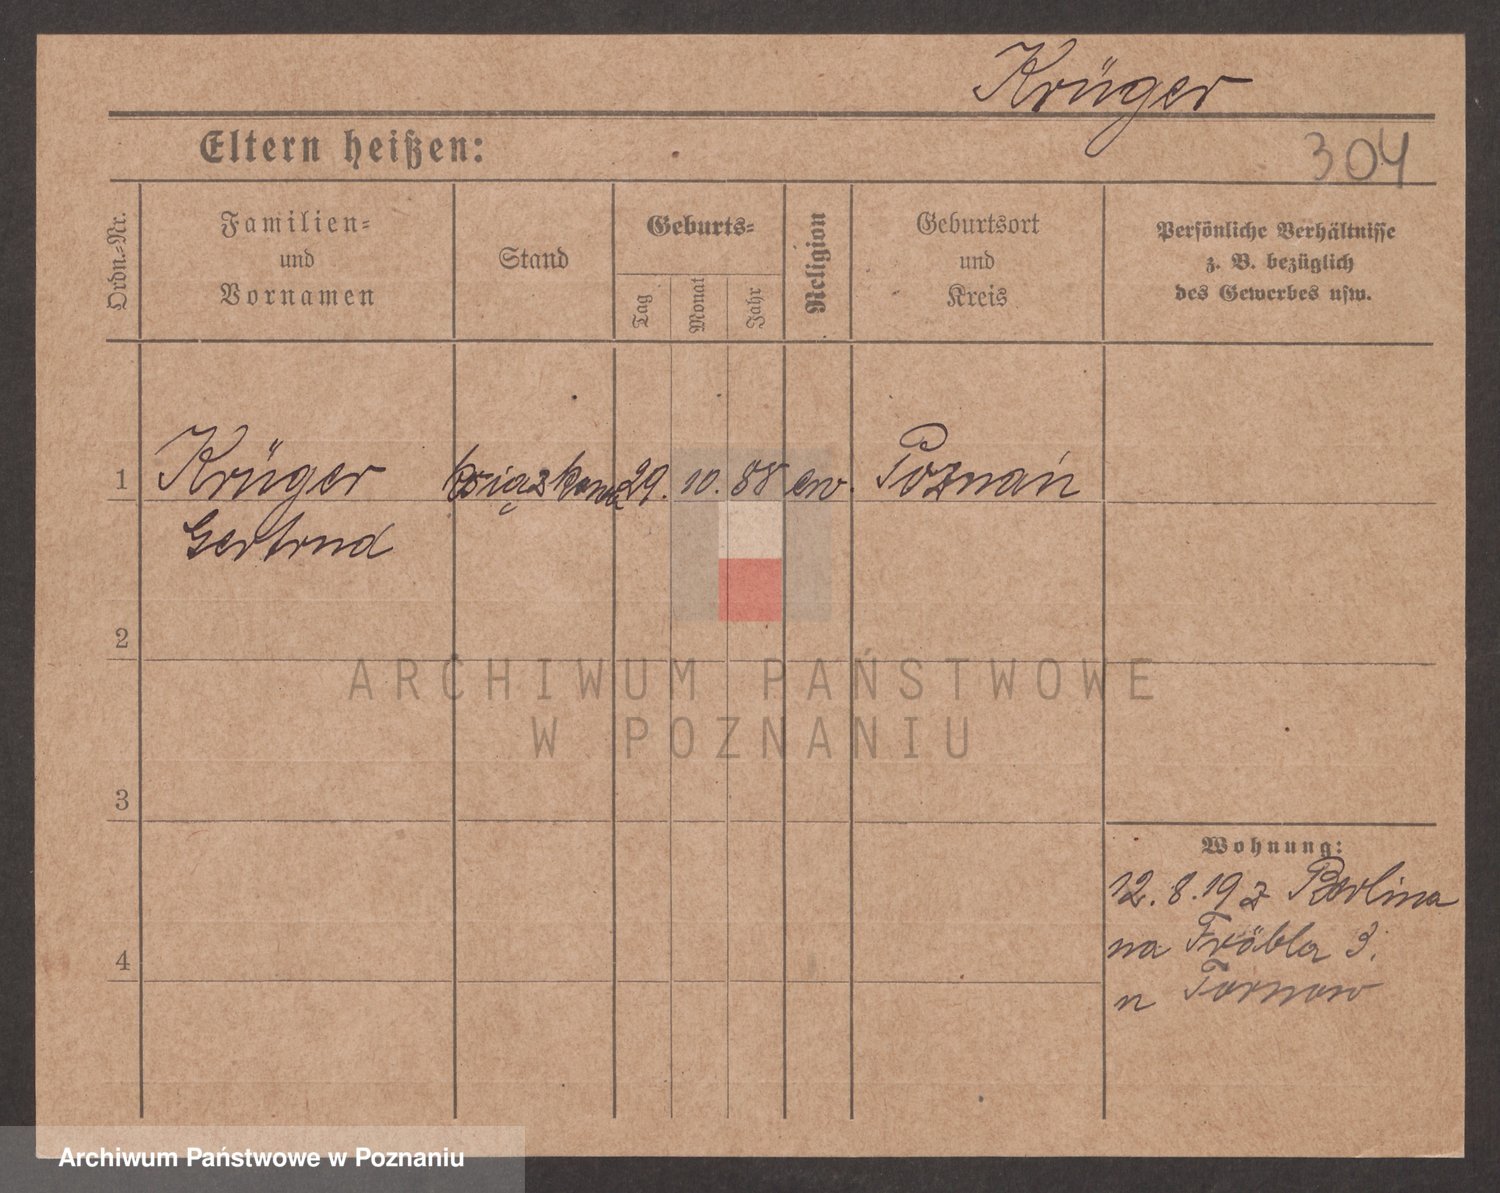 Krüger
Eltern heißen:
304
Ordn.-Nr.
Familien-
und
Vornamen
Stand
Geburts-
Tag
Monat
Jahr
Religion
Geburtsort
und
Kreis
Persönliche Verhältnisse
z. B. bezüglich
des Gewerbes usw.
1 Krüger 29. 10. 88 ew. Poznań
Gertrud
2
ARCHIWUM PAŃSTWOWE
W POZNANIU
3
Wohnung:
12. 8. 19 z Berlina
na Fröbla 3.
4
u Tornow
Archiwum Państwowe w Poznaniu